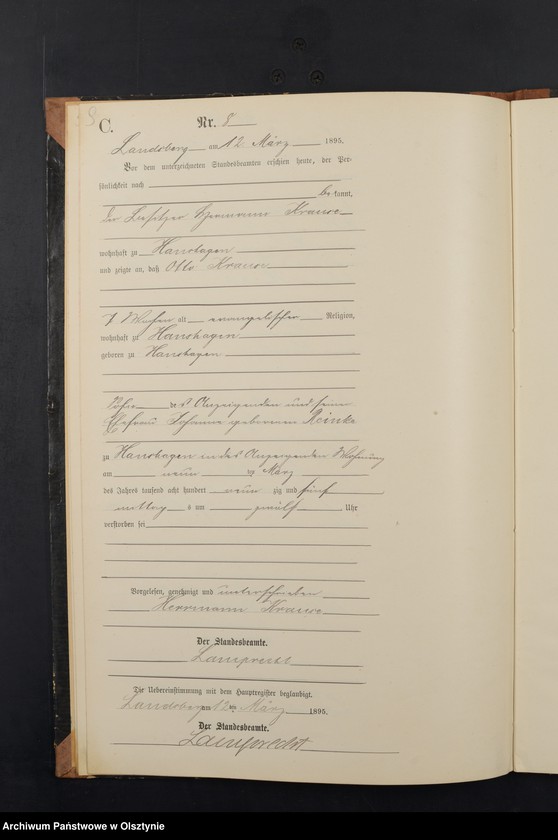 C. Nr. 8
Landsberg am 12 März 1895.
Vor dem unterzeichneten Standesbeamten erschien heute, der Per-
sönlichkeit nach
be kannt,
der Besitzer Hermann Krause
wohnhaft zu Hanshagen
und zeigte an, daß Otto Krause
7 Wochen alt evangelischer Religion,
wohnhaft zu Hanshagen
geboren zu Hanshagen
Sohn des Anzeigenden und seiner
Ehefrau Johanne geborenen Reinke
zu Hanshagen in des Anzeigenden Wohnung
am neun ten März
des Jahres tausend acht hundert neun zig und fünf
mittag s um zwölf Uhr
verstorben sei
Vorgelesen, genehmigt und unterschrieben
Herrmann Krause
Der Standesbeamte.
Lamprecht
Die Uebereinstimmung mit dem Hauptregister beglaubigt.
Landsberg am 12 ten März 1895.
Der Standesbeamte.
Lamprecht
Archiwum Państwowe w Olsztynie